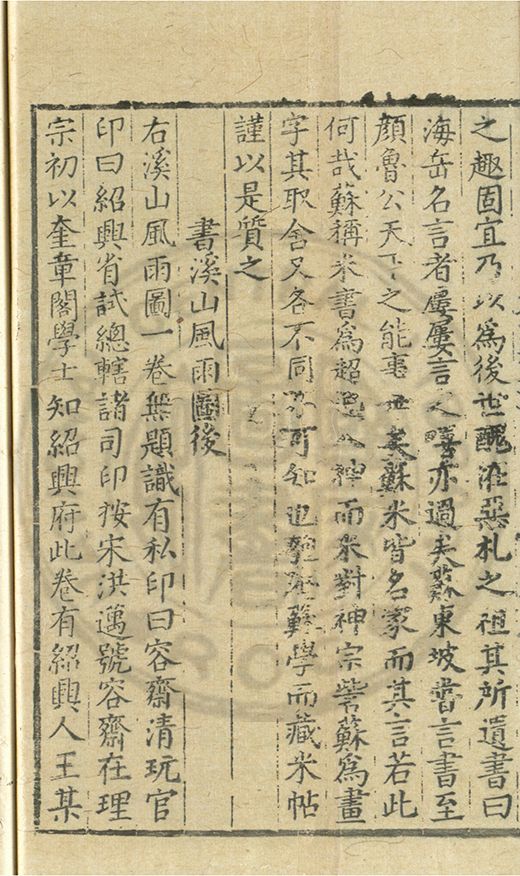 之趣固宜乃以為後世醜惡札之祖其所遺書曰
海岳名言者屢屢言之嘻亦過矣蘇東坡嘗言書至
顏魯公天下之能事畢矣蘇米皆名家而其言若此
何哉蘇稱米書為超逸入神而米對神宗訾蘇為畫
字其取舍又各不同不可知也匏菴蘇學而藏米帖
謹以是質之
書溪山風雨圖後
右溪山風雨圖一卷無題識有私印曰容齋清玩官
印曰紹興省試總轄諸司印按宋洪邁號容齋在理
宗初以奎章閣學士知紹興府此卷有紹興人王某